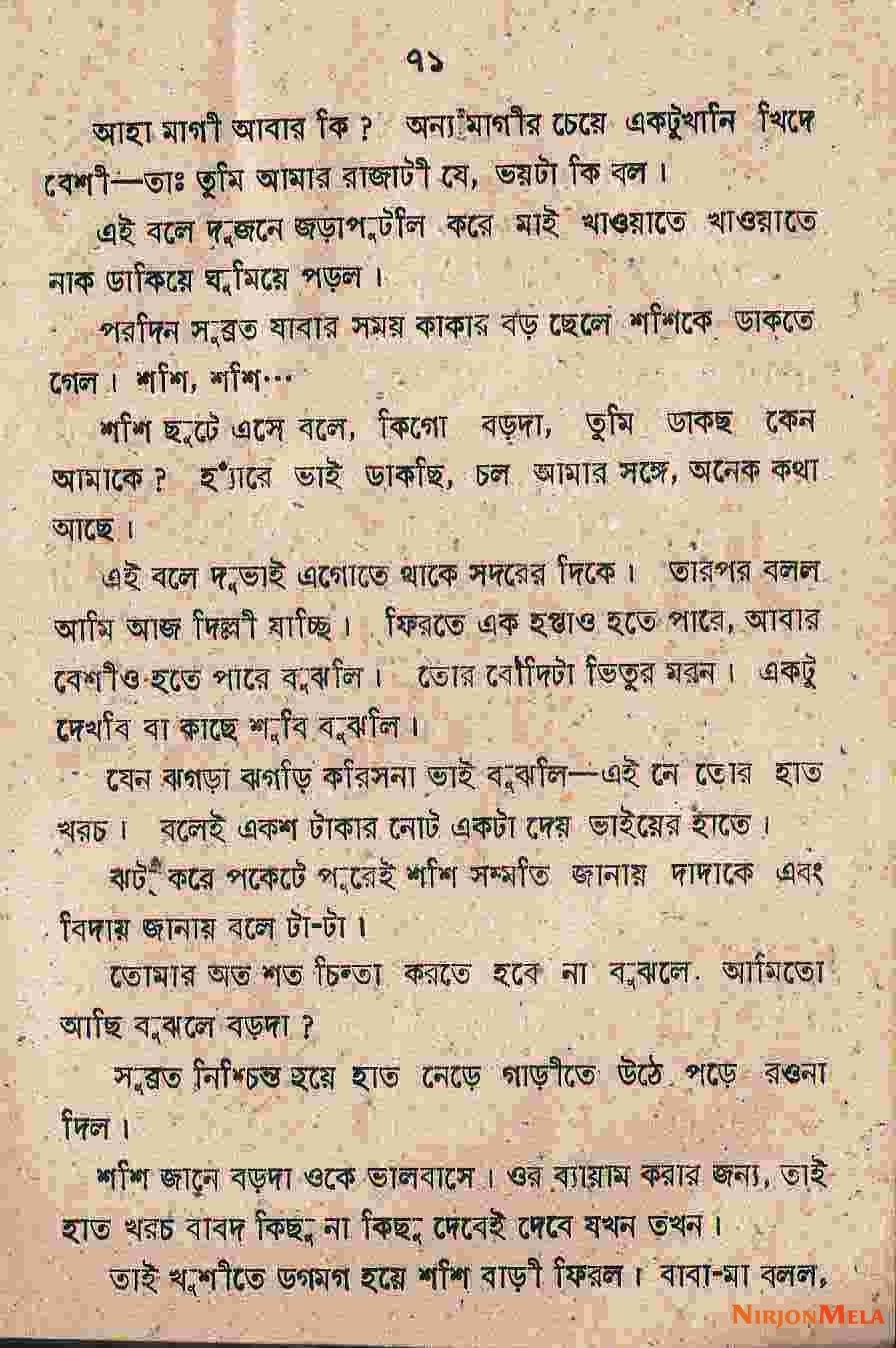 ৭১
আহা মাগী আবার কি ? অন্য মাগীর চেয়ে একটুখানি খিদে
বেশী—তাঃ তুমি আমার রাজাটী যে, ভয়টা কি বল ।
এই বলে দুজনে জড়াপুটলি করে মাই খাওয়াতে খাওয়াতে
নাক ডাকিয়ে ঘুমিয়ে পড়ল ।
পরদিন সুব্রত যাবার সময় কাকার বড় ছেলে শশিকে ডাকতে
গেল । শশি, শশি···
শশি ছুটে এসে বলে, কিগো বড়দা, তুমি ডাকছ কেন
আমাকে ? হ্যাঁরে ভাই ডাকছি, চল আমার সঙ্গে, অনেক কথা
আছে ।
এই বলে দুভাই এগোতে থাকে সদরের দিকে । তারপর বলল
আমি আজ দিল্লী যাচ্ছি । ফিরতে এক হপ্তাও হতে পারে, আবার
বেশীও হতে পারে বুঝলি । তোর বৌদিটা ভিতুর মরন । একটু
দেখবি বা কাছে শুবি বুঝলি ।
যেন ঝগড়া ঝগড়ি করিসনা ভাই বুঝলি—এই নে তোর হাত
খরচ । বলেই একশ টাকার নোট একটা দেয় ভাইয়ের হাতে ।
ঝট্ করে পকেটে পুরেই শশি সম্মতি জানায় দাদাকে এবং
বিদায় জানায় বলে টা-টা ।
তোমার অত শত চিন্তা করতে হবে না বুঝলে. আমিতো
আছি বুঝলে বড়দা ?
সুব্রত নিশ্চিন্ত হয়ে হাত নেড়ে গাড়ীতে উঠে পড়ে রওনা
দিল ।
শশি জানে বড়দা ওকে ভালবাসে । ওর ব্যায়াম করার জন্য, তাই
হাত খরচ বাবদ কিছু না কিছু দেবেই দেবে যখন তখন ।
তাই খুশীতে ডগমগ হয়ে শশি বাড়ী ফিরল । বাবা-মা বলল,
NIRJONMELA